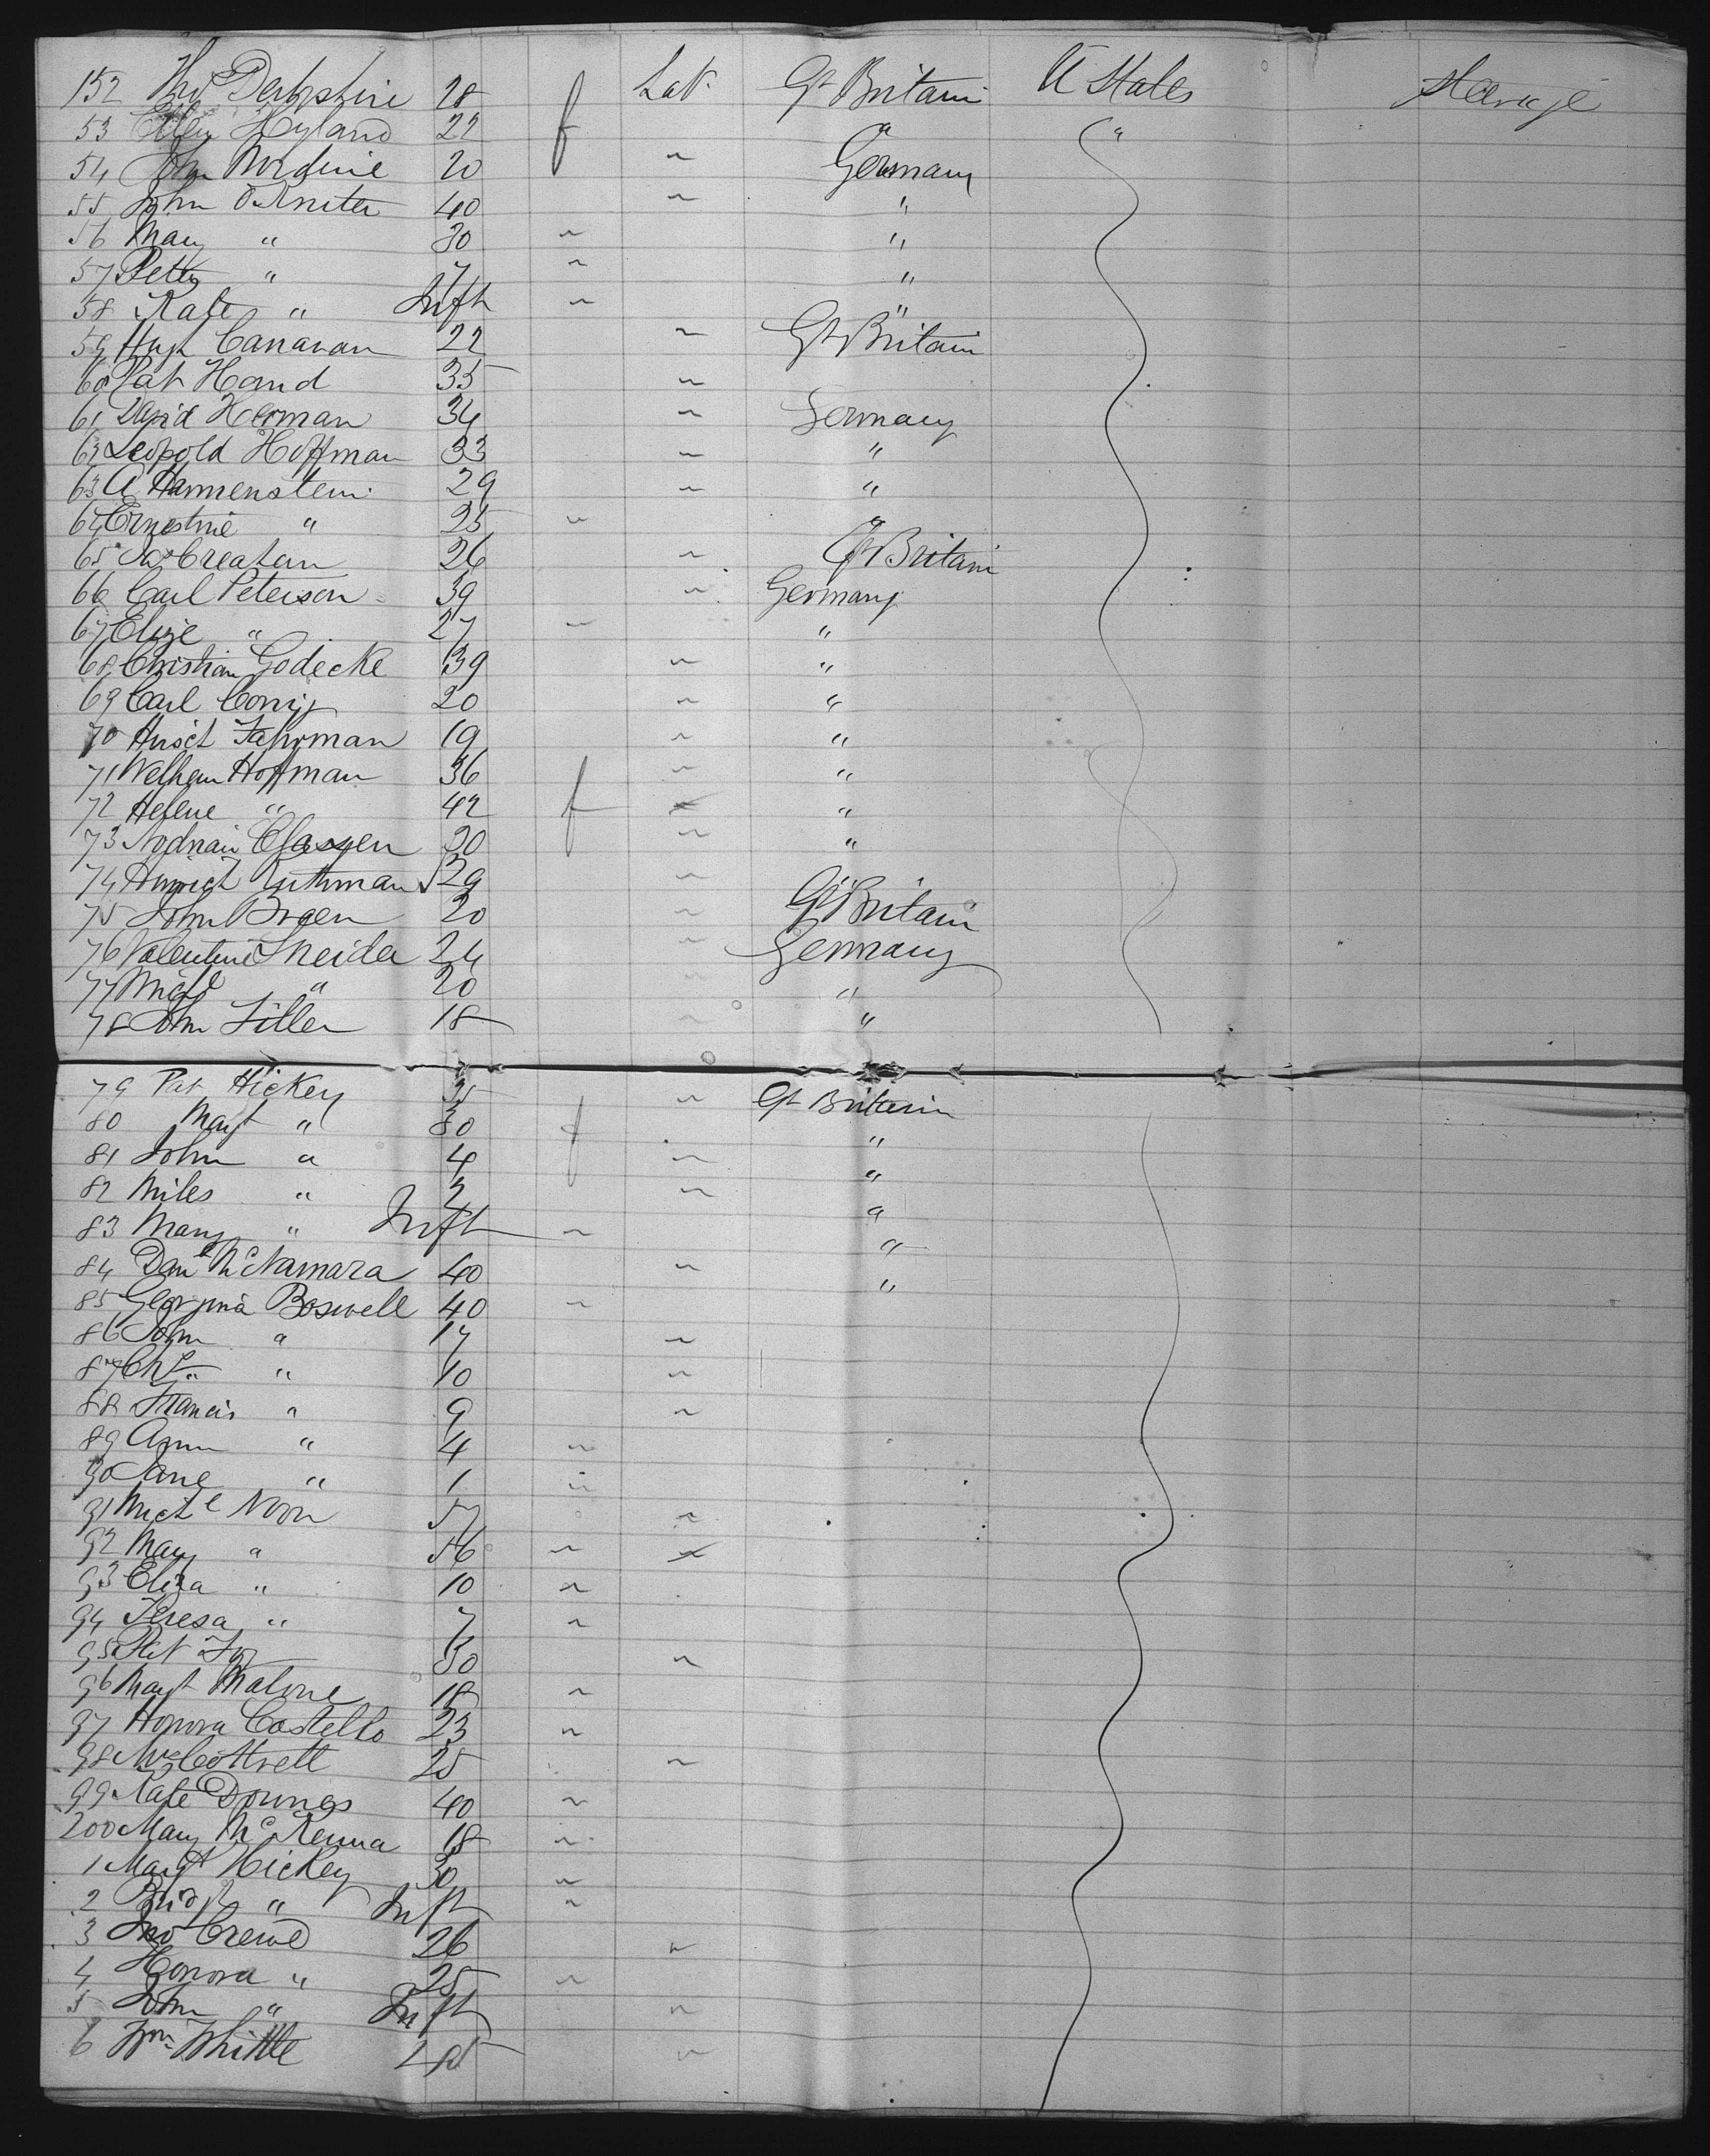 152 28 Lab. Gt Britain U States Steerage
53 Ellen Hyland 22 f " "
54 John 20 " Germany
55 John 40 " "
56 Mary " 30 " "
57 " 7 " "
58 Kate " Inft " "
59 Hugh Canavan 22 " Gt Britain
60 Pat Hand 35 "
61 David Herman 34 " Germany
62 Leopold Hoffman 33 " "
63 A Hammenstein 29 " "
64 Ernestine " 25 " "
65 Creaton 26 " Gt Britain
66 Carl Peterson 39 " Germany
67 Elize " 27 " "
68 Christian Godecke 39 " "
69 Carl 20 " "
70 Fahrman 19 " "
71 Hoffman 36 " "
72 Helene " 42 f "
73 Classen 20 " "
74 29 " "
75 John Breen 20 " Gt Britain
76 Valentine Sneider 24 " Germany
77 " 20 " "
78 John 18 " "
79 Pat Hickey 35 " Gt Britain
80 Margt " 30 f "
81 John " 4 " "
82 Miles " 2 " "
83 Mary " Inft " "
84 Danl McNamara 40 " "
85 Georgina Boswell 40 "
86 John " 17 "
87 Chs " 10 "
88 Francis " 9 "
89 Ann " 4 "
90 Jane " 1 "
91 Michl Noon 57 "
92 Mary " 56 "
93 Eliza " 10 "
94 Teresa " 7 "
95 Pat 30 "
96 Margt Malone 18 "
97 Honora Costello 23 "
98 Cottrell 25 "
99 Kate Downes 40 "
200 Mary McKenna 18 "
1 Margt Hickey 30 "
2 Bridgt " Inft "
3 Jno Crewe 26 "
4 Honora " 25 "
5 John " Inft "
6 Wm Whittle "